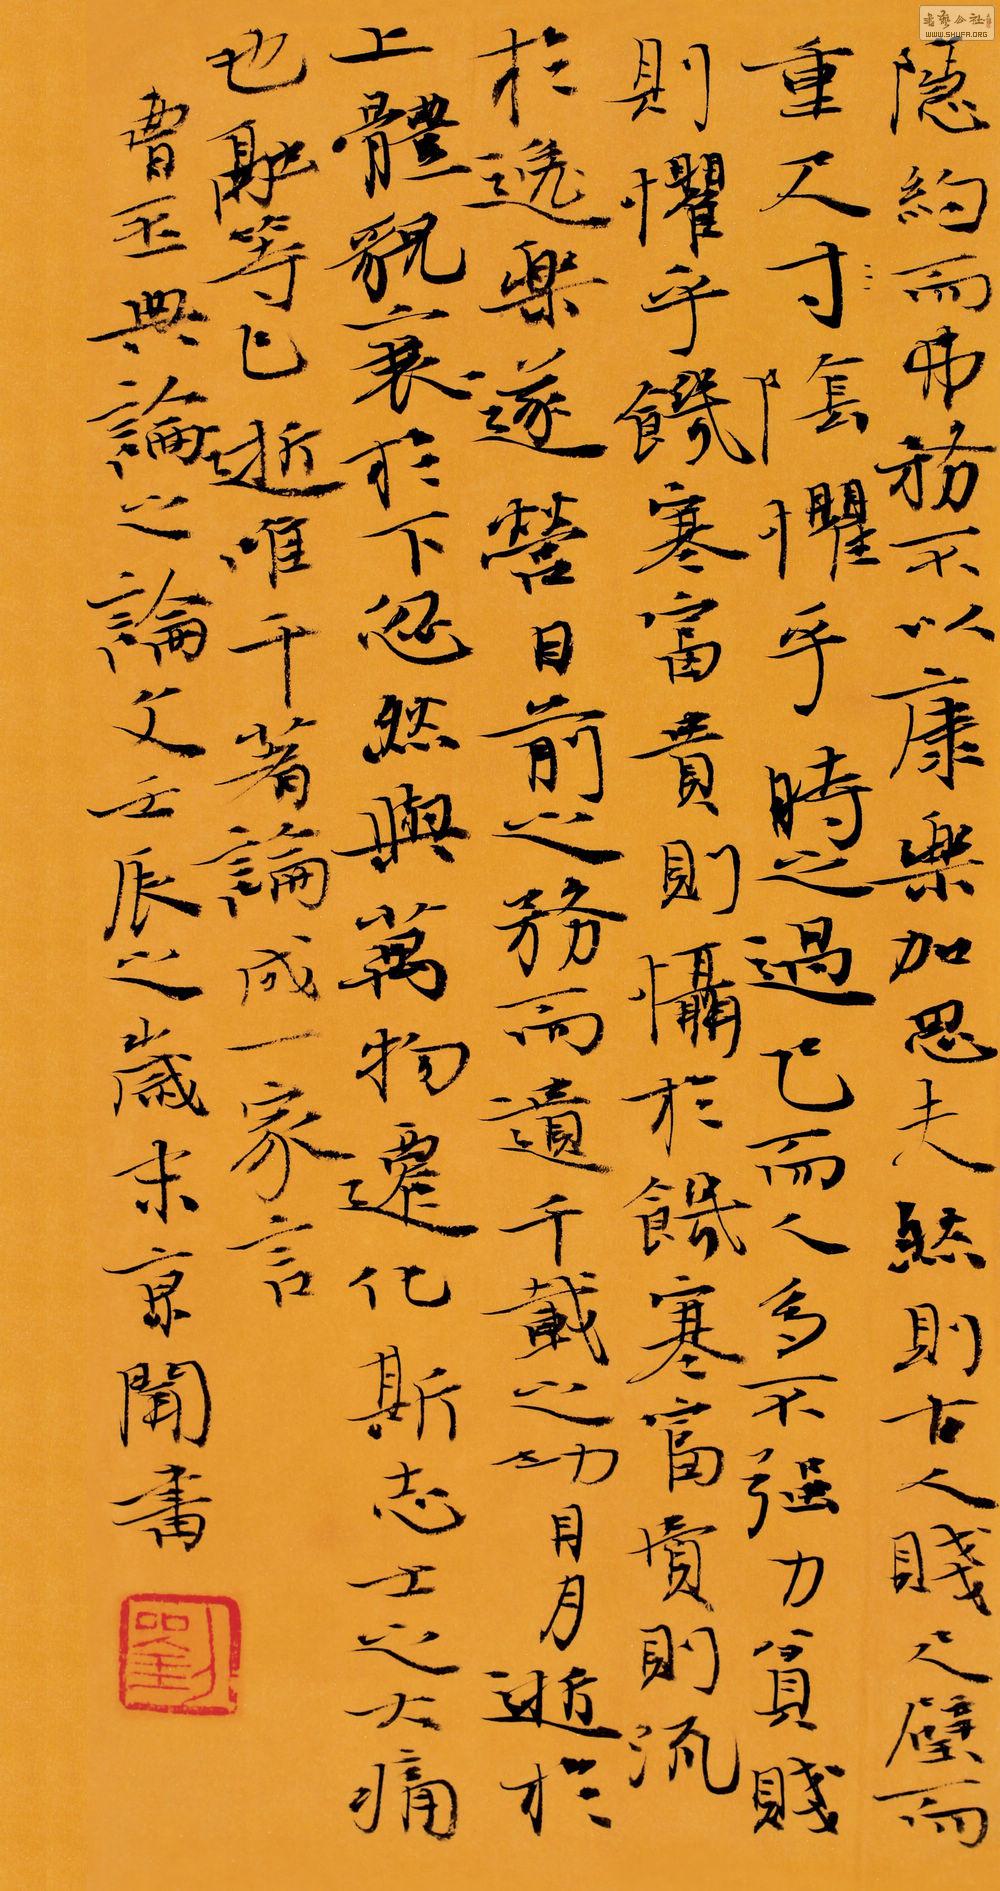 隱約而弗務不以康樂加思夫然則古人賤尺璧而
重尺寸陰懼乎時之過已而人多不强力貧賤
則懼乎饑寒富貴則懾於饑寒富貴則流
於逸樂遂營目前之務而遺千載之功日月逝於
上體貌衰於下忽然與萬物遷化斯志士之大痛
也融等已逝唯干著論成一家言
曹丕典論之論文壬辰之歲末京聞書
劉
書藝公社
WWW.SHUFA.ORG